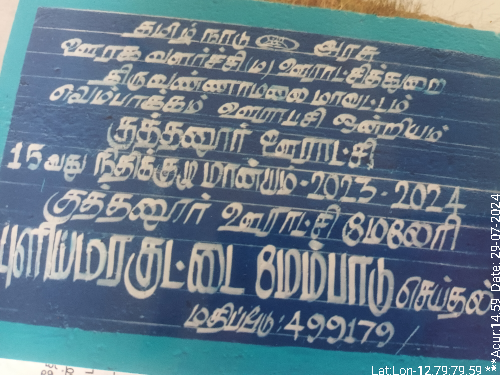 தமிழ் நாடு அரசு
ஊரக வளர்ச்சி(ம) ஊராட்சித்துறை
திருவண்ணாமலை மாவட்டம்
வெம்பாக்கம் ஊராட்சி ஒன்றியம்
குத்தனூர் ஊராட்சி
15வது நிதிக்குழு மான்யம் - 2023 - 2024
குத்தனூர் ஊராட்சி மேலேரி
புளியமரகுட்டை மேம்பாடு செய்தல்
மதிப்பீடு: 499179/
Lat:Lon-12.79:79.59 ***Acur:14.59 Date: 29-07-2024